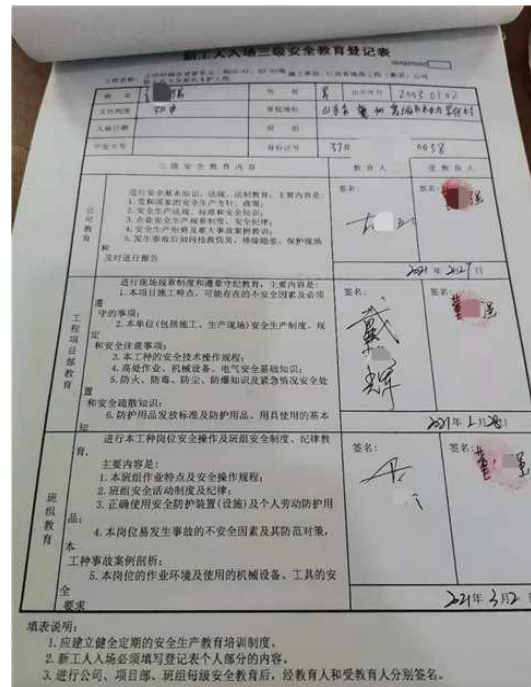 新工人入场三级安全教育登记表
工程名称：
施工单位：江西省地质工程（集团）公司
姓 名
性 别 男 出生年月 2003.01.02
文化程度 初中 家庭地址 山东省
入场日期 班 组
平安卡号 身份证号 370 0038
三级安全教育内容 教育人 受教育人
公司教育
进行安全基本知识、法规、法制教育，主要内容是：
1.党和国家的安全生产方针、政策；
2.安全生产法规、标准和安全知识；
3.企业安全生产规章制度、安全纪律；
4.安全生产形势及重大事故案例教训；
5.发生事故后如何抢救伤员、排除险患、保护现场
和
及时进行报告
签名：
签名：
2021年2月27日
工程项目部教育
进行现场规章制度和遵章守纪教育，主要内容是：
1.本项目施工特点，可能存在的不安全因素及必须
遵
守的事项；
2.本单位(包括施工、生产现场)安全生产制度、规
定
和安全注意事项；
3.本工种的安全技术操作规程；
4.高处作业、机械设备、电气安全基础知识；
5.防火、防毒、防尘、防爆知识及紧急情况安全处
置
和安全疏散知识；
6.防护用品发放标准及防护用品、用具使用的基本
知
签名：
戴
辉
签名：
董 强
2021年2月28日
班组教育
进行本工种岗位安全操作及班组安全制度、纪律教
育，
主要内容是：
1.本班组作业特点及安全操作规程；
2.班组安全活动制度及纪律；
3.正确使用安全防护装置(设施)及个人劳动防护用
品；
4.本岗位易发生事故的不安全因素及其防范对策，
本
工种事故案例剖析；
5.本岗位的作业环境及使用的机械设备、工具的安
全
要求
签名：
签名：
董 强
2021年3月2日
填表说明：
1.应建立健全定期的安全生产教育培训制度。
2.新工人入场必须填写登记表个人部分的内容。
3.进行公司、项目部、班组每级安全教育后，经教育人和受教育人分别签名。